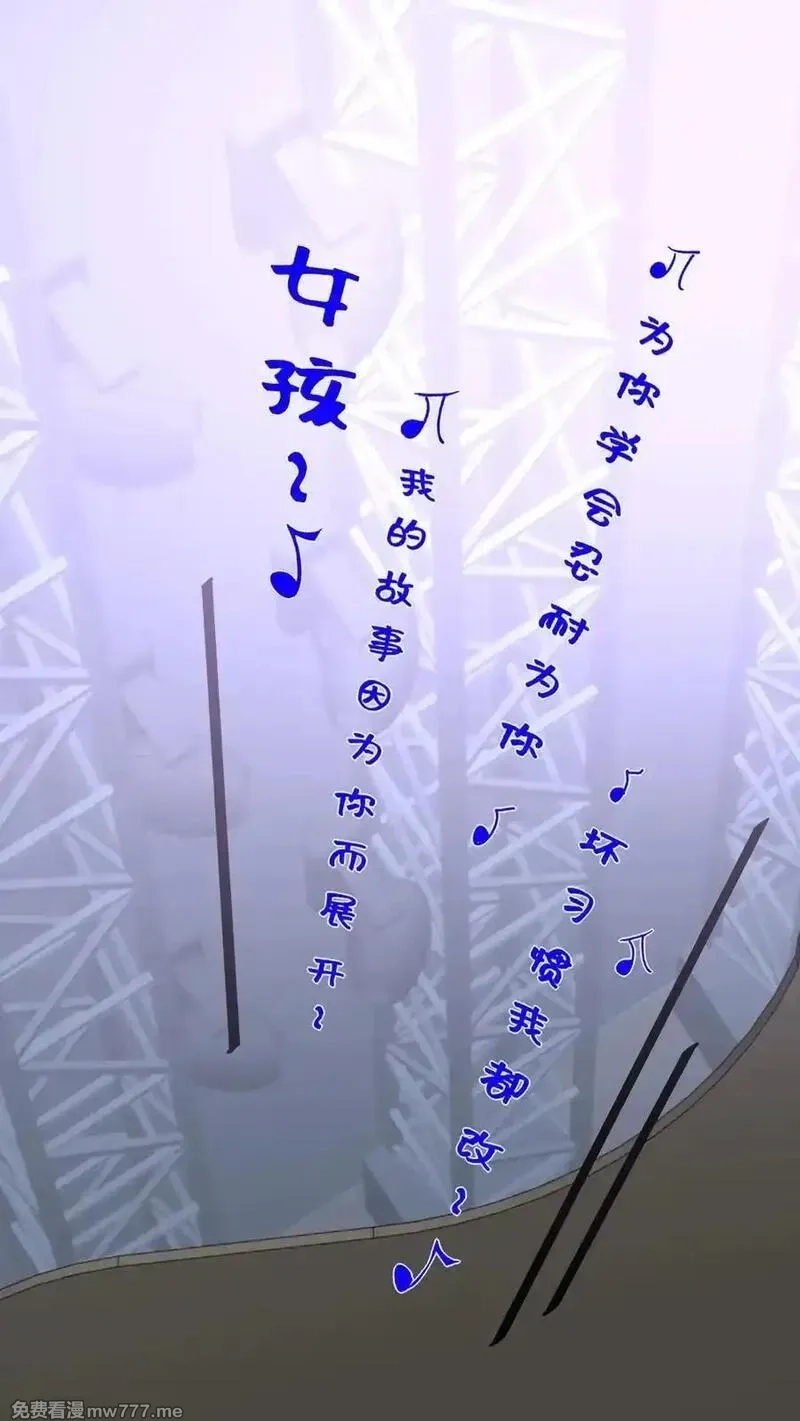 ♫为你学会忍耐为你♪
♪坏习惯我都改~♪
♫
♫我的故事因为你而展开~
女孩~♪
免费看漫mw777.me